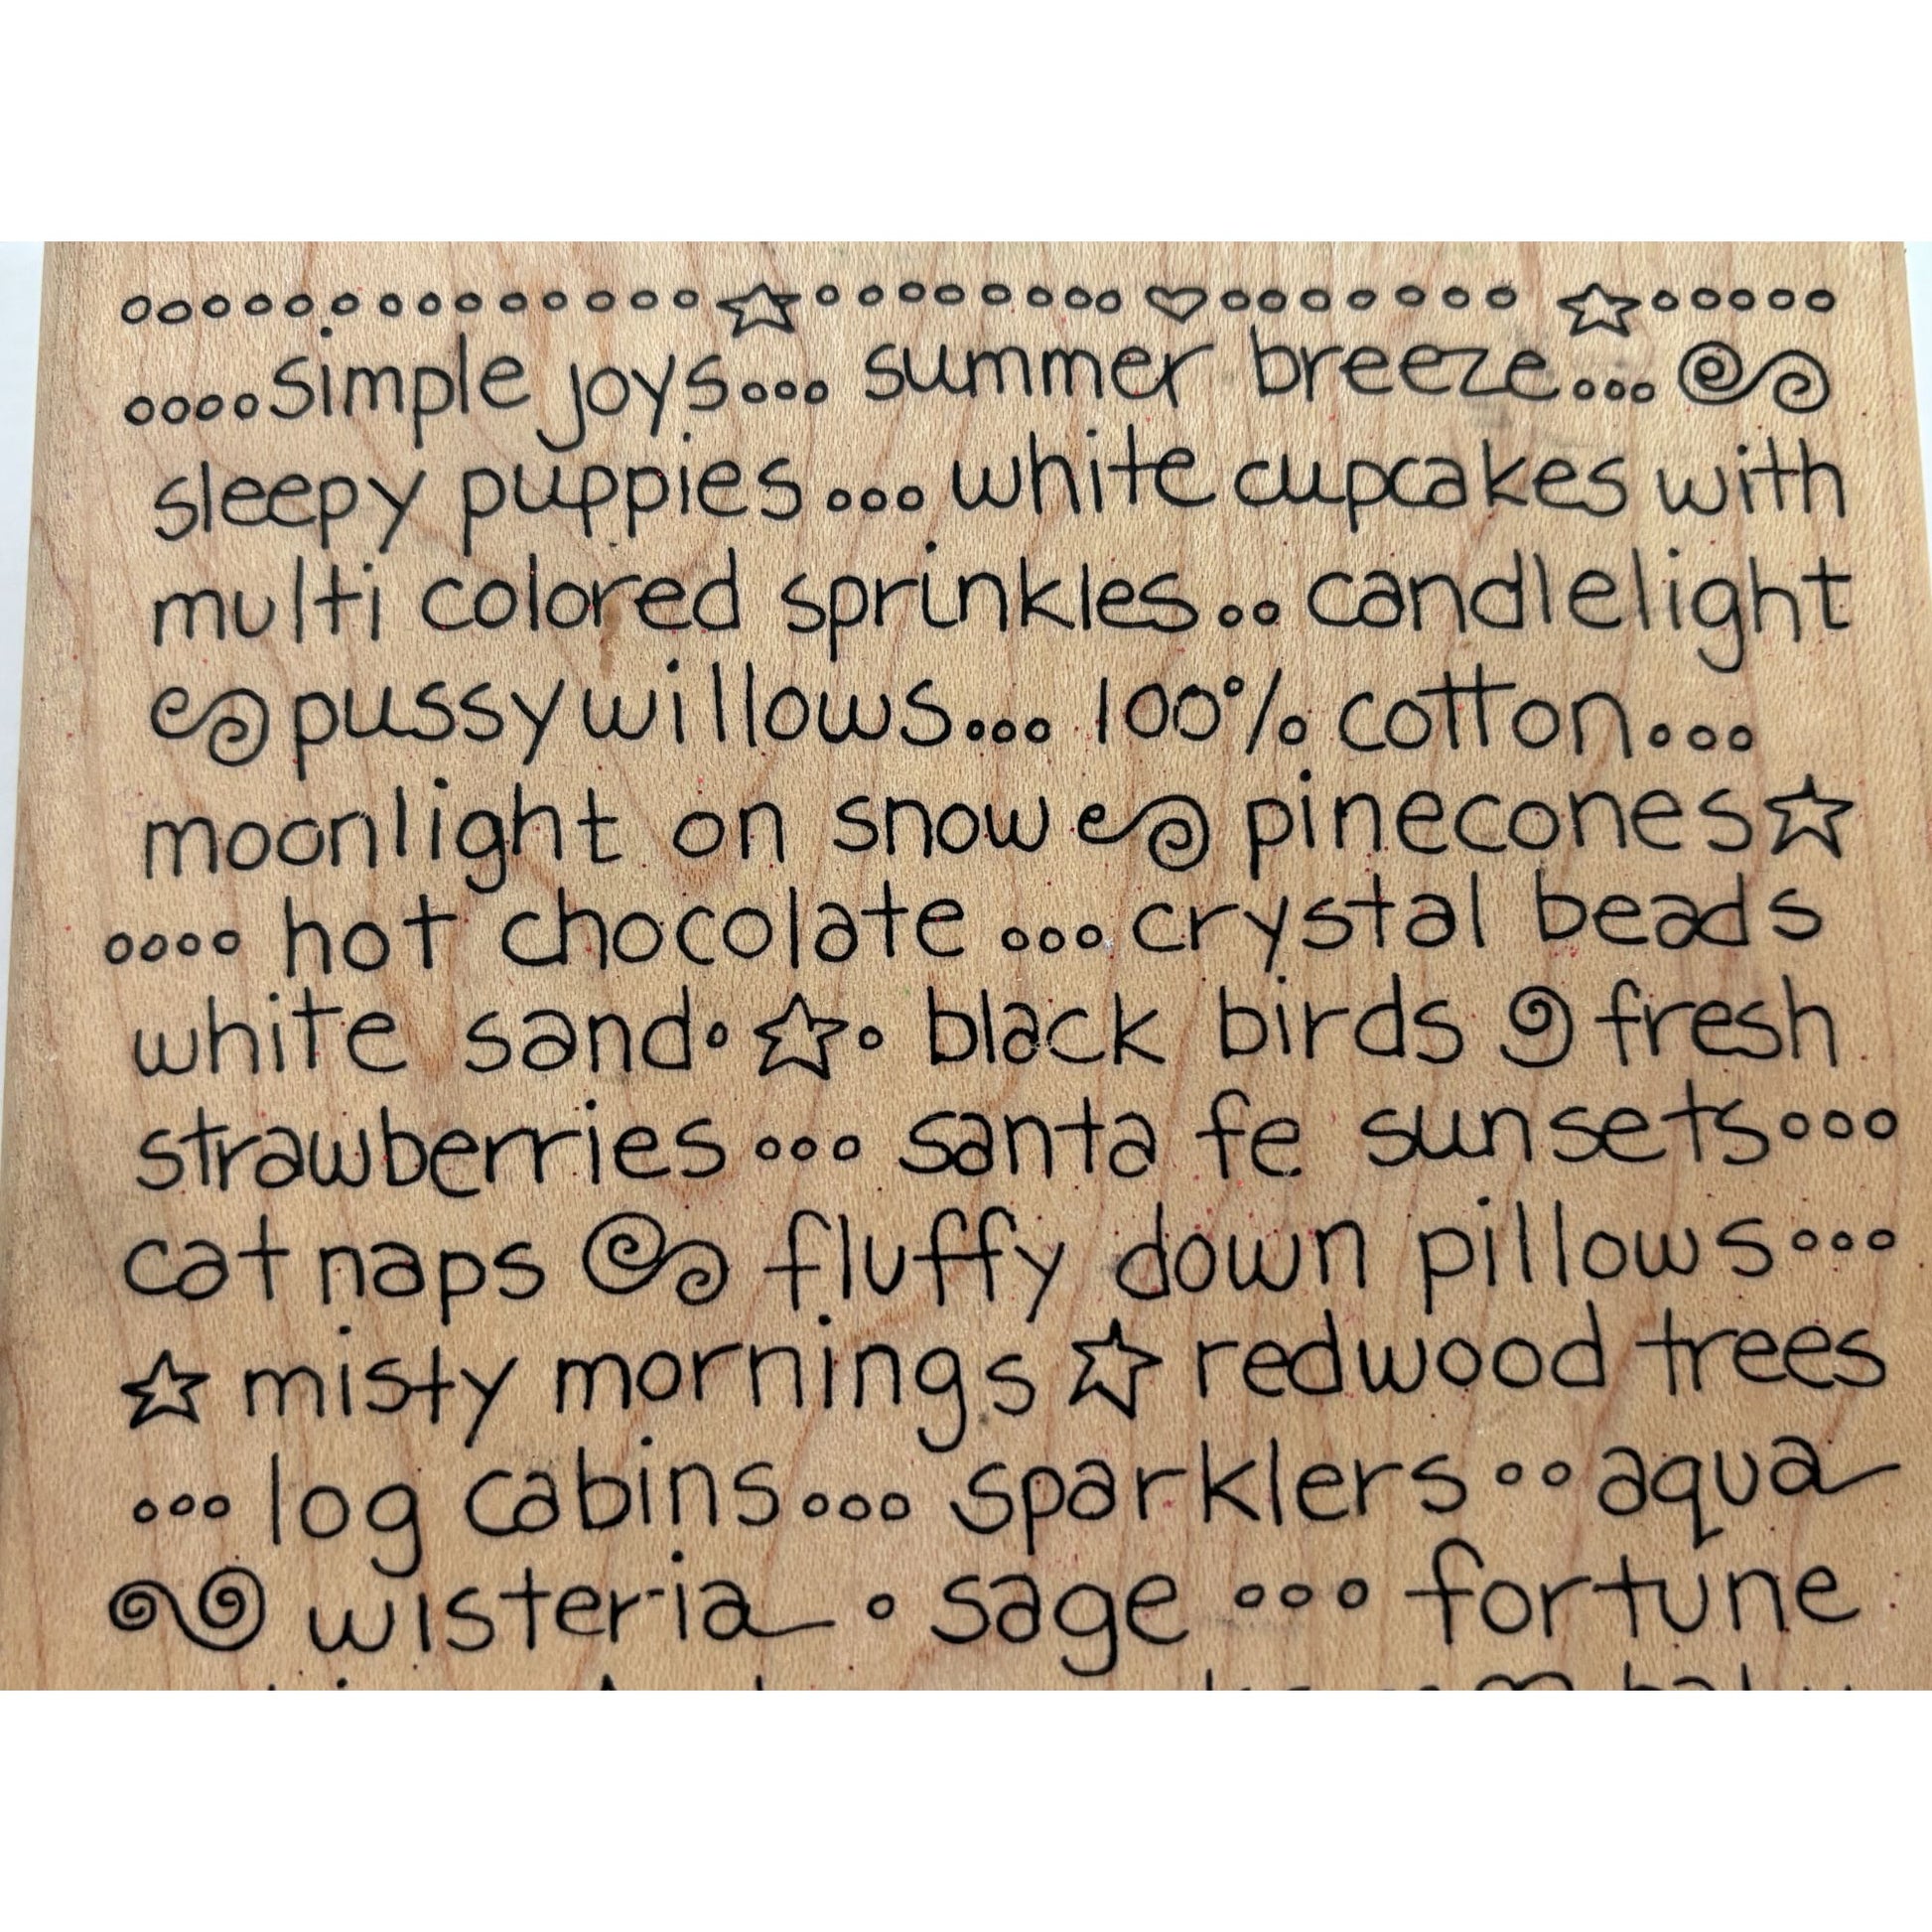 ....simple joys... summer breeze...
sleepy puppies... white cupcakes with
multi colored sprinkles.. candlelight
pussywillows... 100% cotton...
moonlight on snow pinecones
.... hot chocolate ... crystal beads
white sand. . black birds fresh
strawberries ... santa fe sunsets...
cat naps fluffy down pillows...
misty mornings redwood trees
... log cabins... sparklers .. aqua
wisteria . sage ... fortune